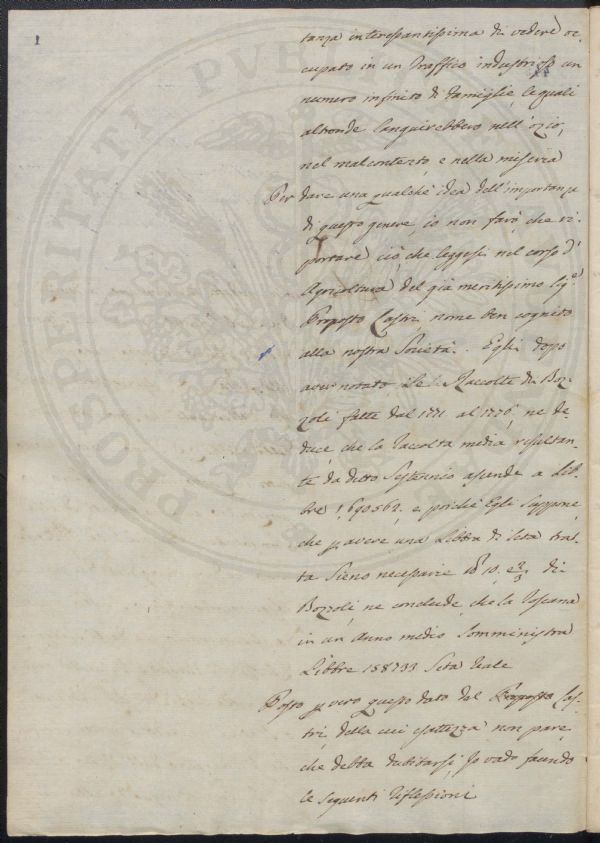 1
tanza interessantissima di vedere oc-
cupato in un Traffico industrioso un
numero infinito di Famiglie, le quali
altronde languirebbero nell'ozio,
nel malcontento, e nella miseria
Per dare una qualche idea dell'importanza
di questo genere, io non farò, che ri-
portare ciò, che leggesi nel corso d'
Agricoltura del già meritissimo Sig.
Proposto Lastri, nome ben cognito
alla nostra Società. Egli dopo
aver notato le Raccolte di Boz-
zoli fatte dal 1771 al 1776, ne de-
duce, che la raccolta media resultan-
te da detto Sessennio ascende a Lib-
bre 1,690562, e poichè Egli suppone,
che p avere una Libbra di Seta trat-
ta sieno necessarie 10 e 2/3 di
Bozzoli, ne conclude, che la Toscana
in un Anno medio somministra
Libbre 158733 Seta reale
Posto p vero questo dato del Proposto Las-
tri, della cui esattezza non pare,
che debba dubitarsi, Io vado facendo
le seguenti riflessioni
PROSPERITATI PUBLICAE